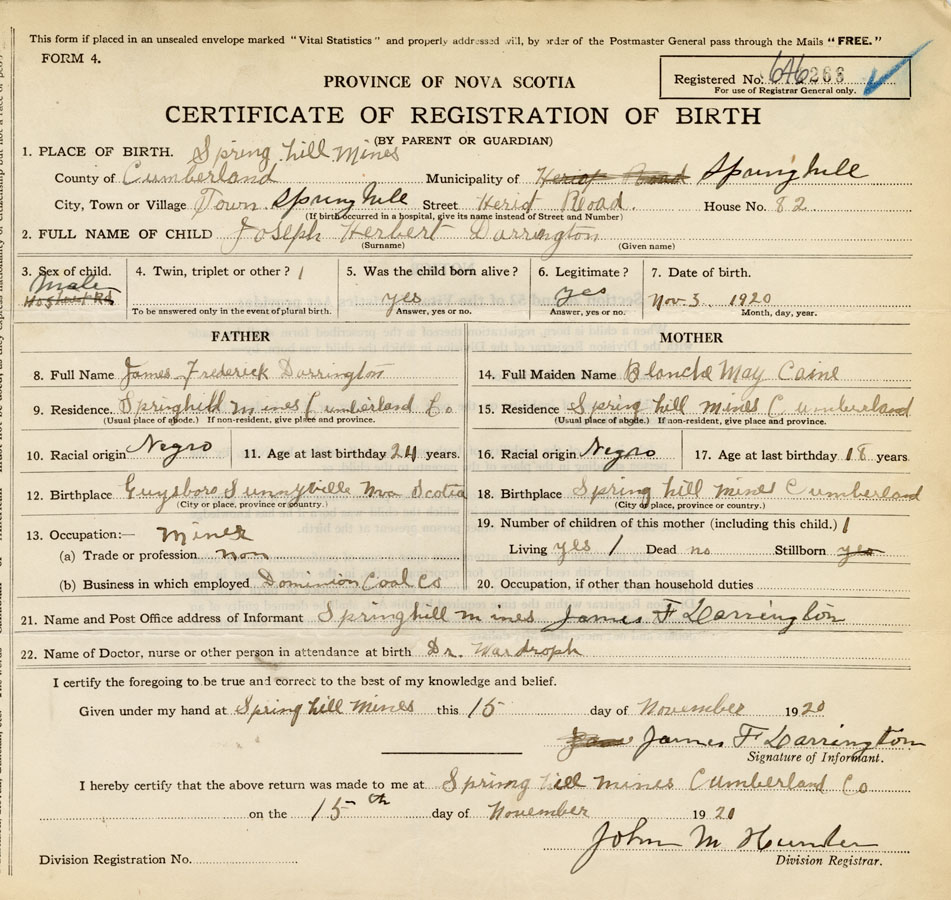 This form if placed in an unsealed envelope marked "Vital Statistics" and properly addressed will, by order of the Postmaster General pass through the Mails "FREE."
FORM 4.
PROVINCE OF NOVA SCOTIA
Registered No.
For use of Registrar General only.
CERTIFICATE OF REGISTRATION OF BIRTH
(BY PARENT OR GUARDIAN)
1. PLACE OF BIRTH. Spring hill Mines
County of Cumberland Municipality of Springhill
City, Town or Village Town Springhill Street Road. House No. 82
(If birth occurred in a hospital, give its name instead of Street and Number)
2. FULL NAME OF CHILD Joseph Herbert Darrington
(Surname) (Given name)
3. Sex of child. Male 4. Twin, triplet or other? 1 5. Was the child born alive? yes 6. Legitimate? yes 7. Date of birth. Nov 3 1920
To be answered only in the event of plural birth. Answer, yes or no. Answer, yes or no. Month, day, year.
FATHER MOTHER
8. Full Name James Frederick Darrington 14. Full Maiden Name Blanche May Caine
9. Residence. Springhill mines Cumberland Co 15. Residence Spring hill mines Cumberland
(Usual place of abode.) If non-resident, give place and province. (Usual place of abode.) If non-resident, give place and province.
10. Racial origin Negro 11. Age at last birthday 24 years. 16. Racial origin Negro 17. Age at last birthday 18 years
12. Birthplace Guysboro Sunnyville Nova Scotia 18. Birthplace Spring hill mines Cumberland
(City or place, province or country.) (City or place, province or country.)
13. Occupation:— Miner 19. Number of children of this mother (including this child.) 1
(a) Trade or profession non Living yes 1 Dead no Stillborn yes
(b) Business in which employed Dominion Coal Co 20. Occupation, if other than household duties
21. Name and Post Office address of Informant Springhill mines James F Darrington
22. Name of Doctor, nurse or other person in attendance at birth Dr.
I certify the foregoing to be true and correct to the best of my knowledge and belief.
Given under my hand at Spring hill Mines this 15 day of November 1920
James F Darrington
Signature of Informant.
I hereby certify that the above return was made to me at Spring hill mines Cumberland Co
on the 15th day of November 1920
John M Hunter
Division Registration No. Division Registrar.